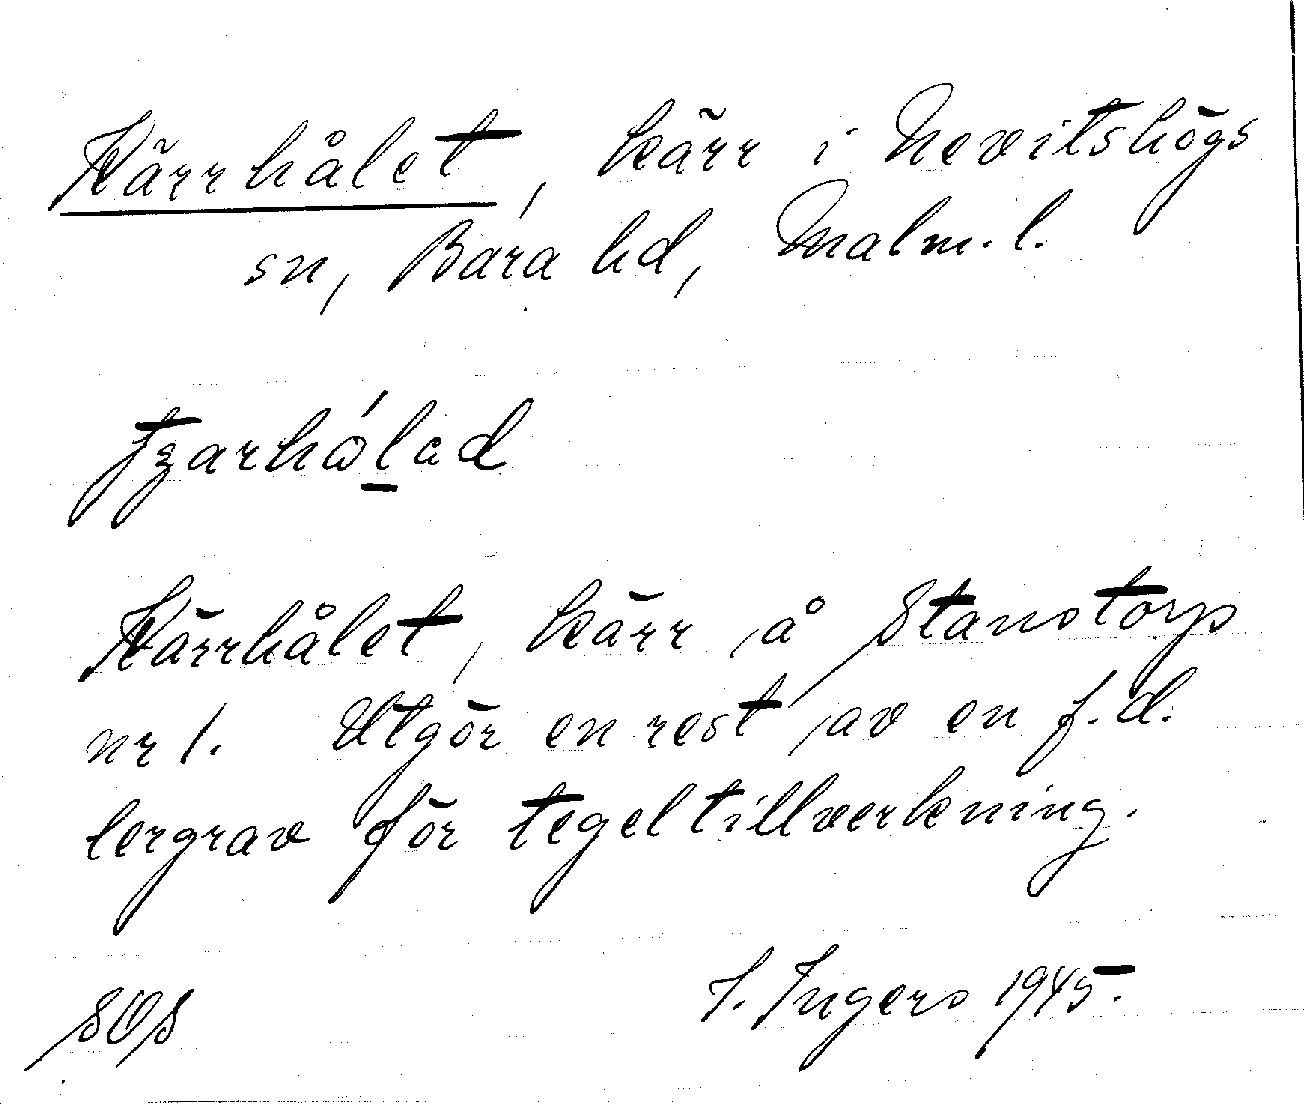 Kärrhålet, kärr i Nevitshögs
sn, Bara hd, Malm. l.
Kärrhålet, kärr å Stanstorps
nr 1. Utgör en rest av en f.d.
lergrav för tegeltillverkning.
I. Ingers 1945.
SOS